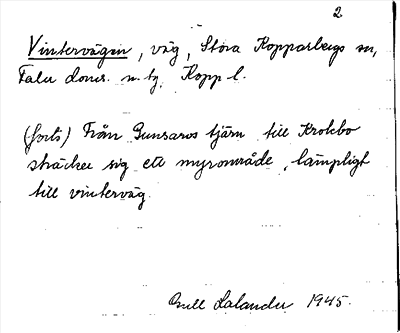 2
Vintervägen, väg, Stora Kopparbergs sn,
Falu doms. n. tg. Kopp l.
(forts) Från Gunsaros tjärn till Krokbo
sträcker sig ett myrområde, lämpligt
till vinterväg.
Lalander 1945.